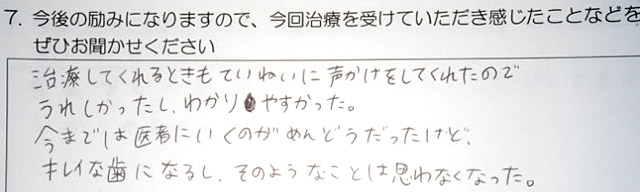 7. 今後の励みになりますので、今回治療を受けていただき感じたことなどを
ぜひお聞かせください
治療してくれるときもていねいに声かけをしてくれたので
うれしかったし、わかりやすかった。
今までは医者にいくのがめんどうだったけど、
キレイな歯になるし、そのようなことは思わなくなった。